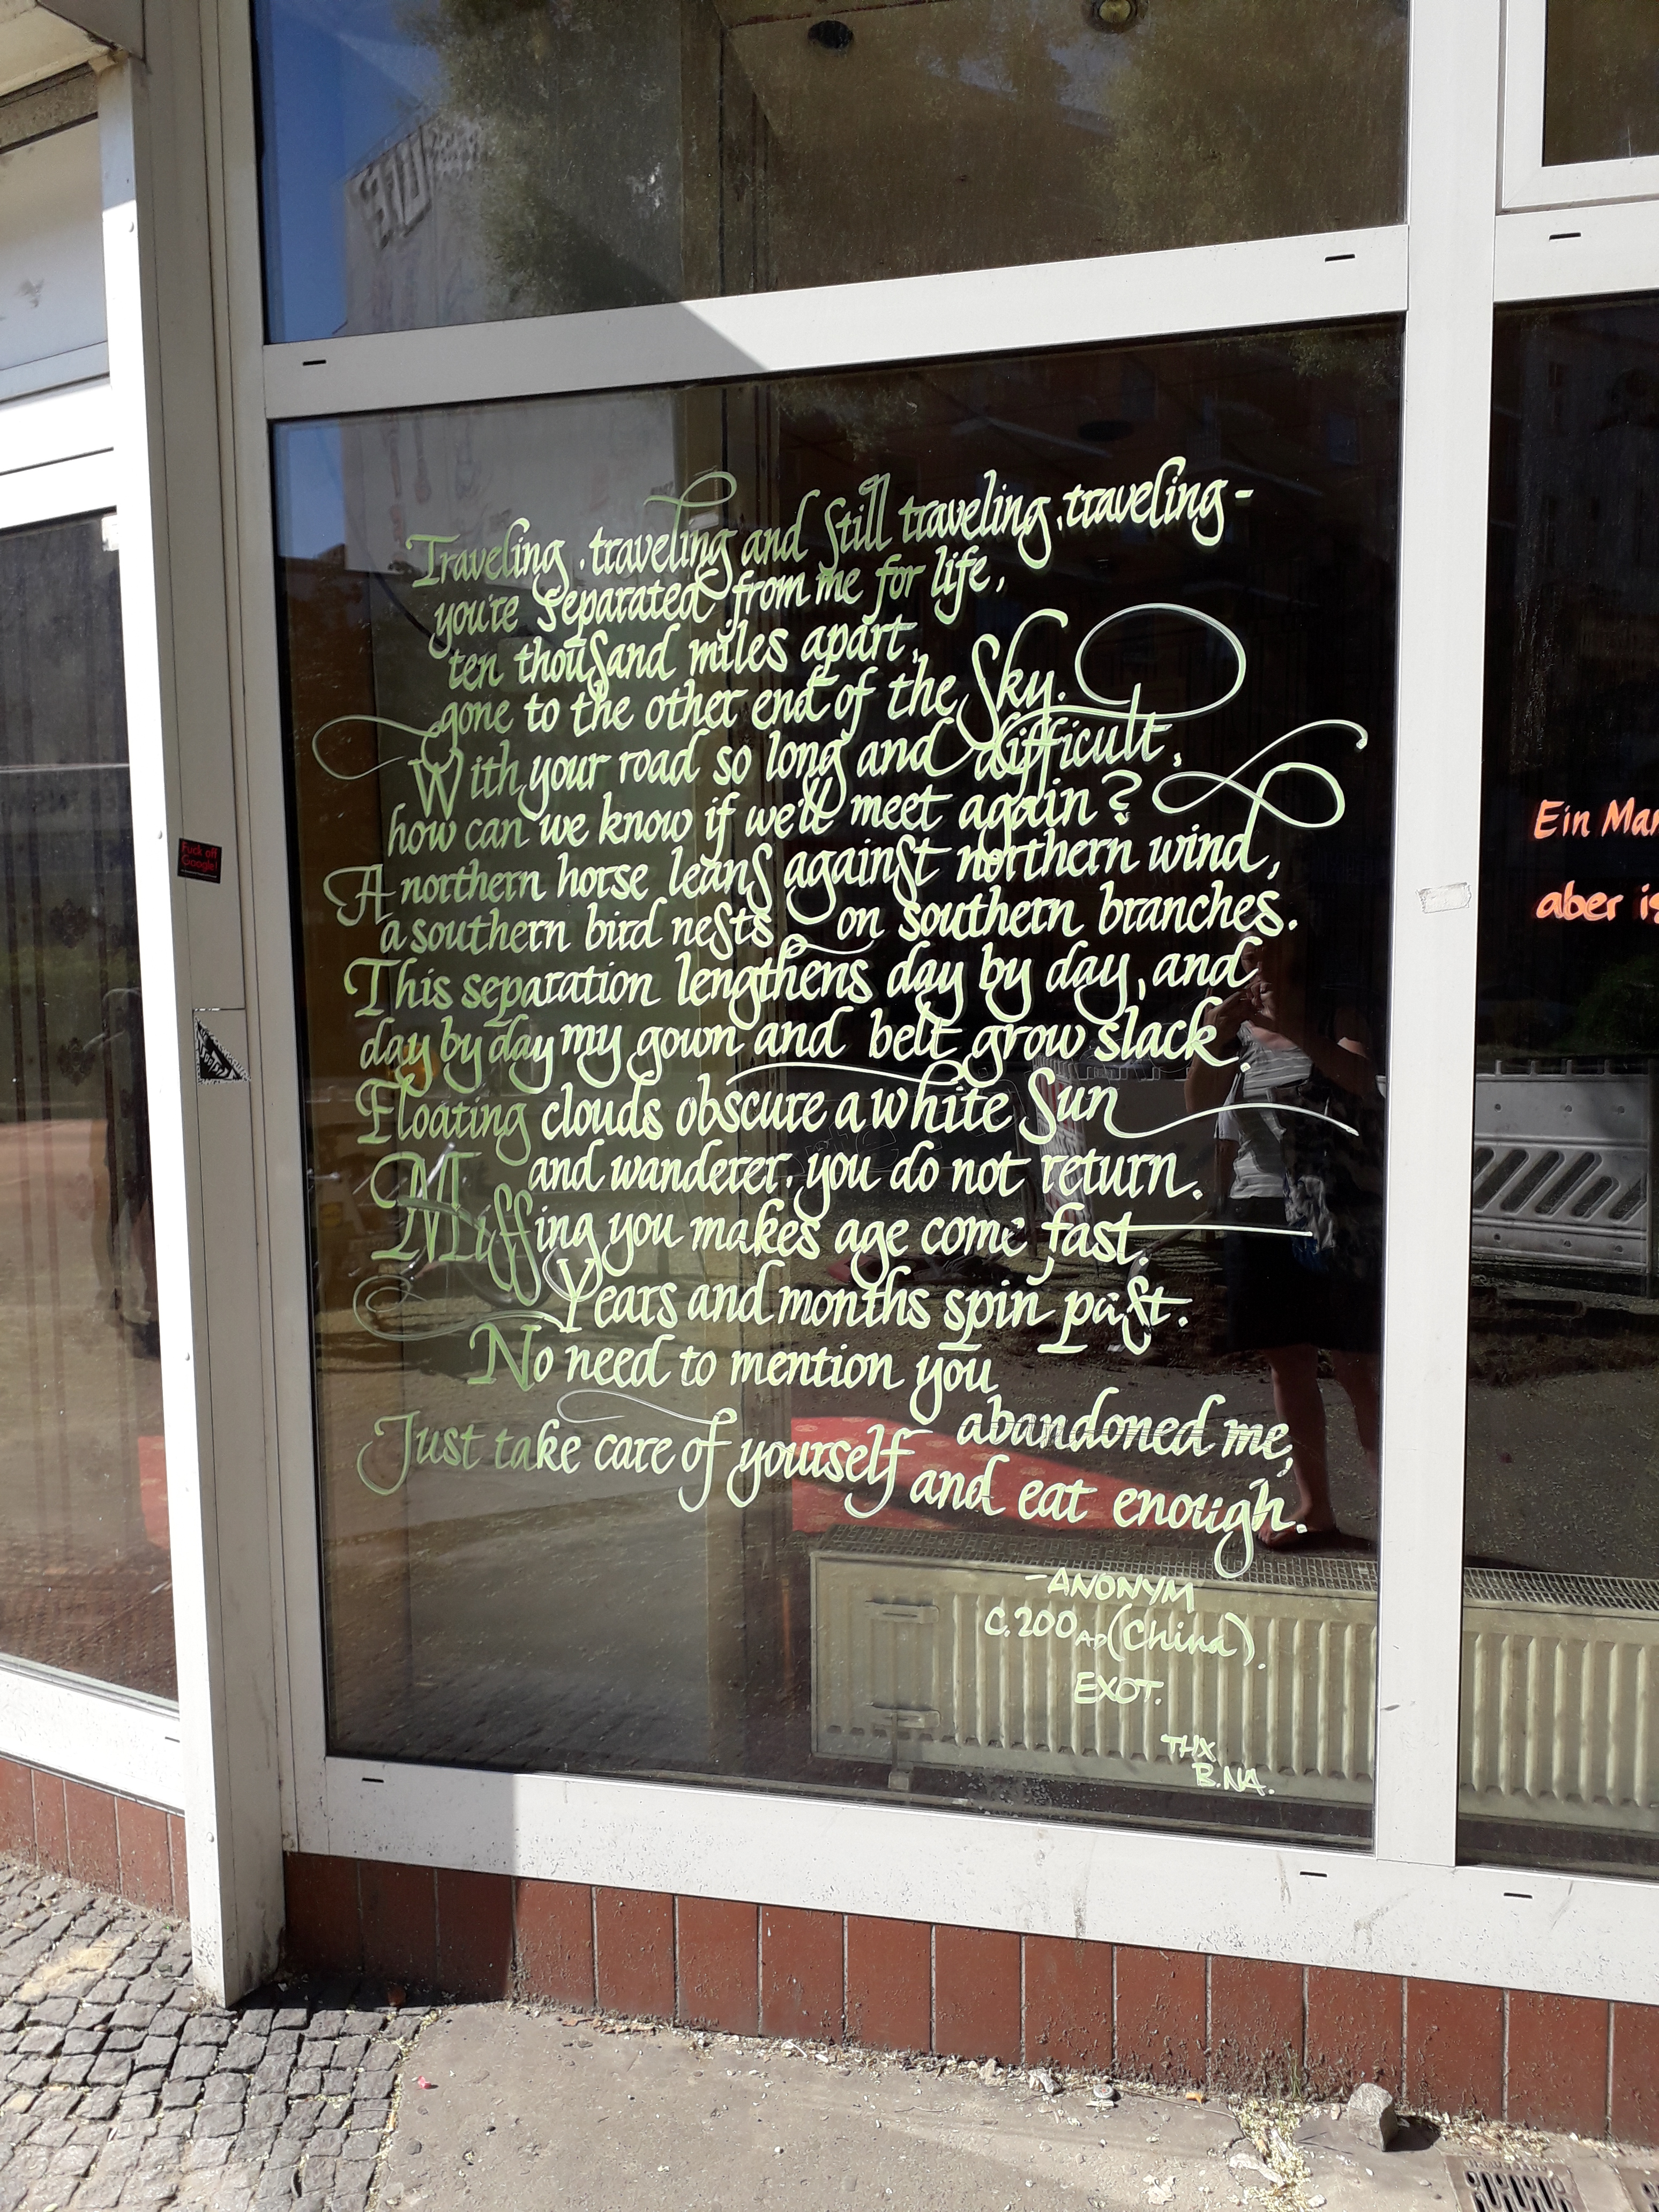 Traveling, traveling and still traveling, traveling -
you're separated from me for life,
ten thousand miles apart,
gone to the other end of the sky.
With your road so long and difficult,
how can we know if we'll meet again?
A northern horse leans against northern wind,
a southern bird nests on southern branches.
This separation lengthens day by day, and
day by day my gown and belt grow slack.
Floating clouds obscure a white sun
and wanderer, you do not return.
Missing you makes age come fast.
Years and months spin past.
No need to mention you
abandoned me,
Just take care of yourself
and eat enough.
- ANONYM
C. 200 AD (China).
EXOT.
THX
B.NA.
Fuck off
Google!
Ein Man
aber is